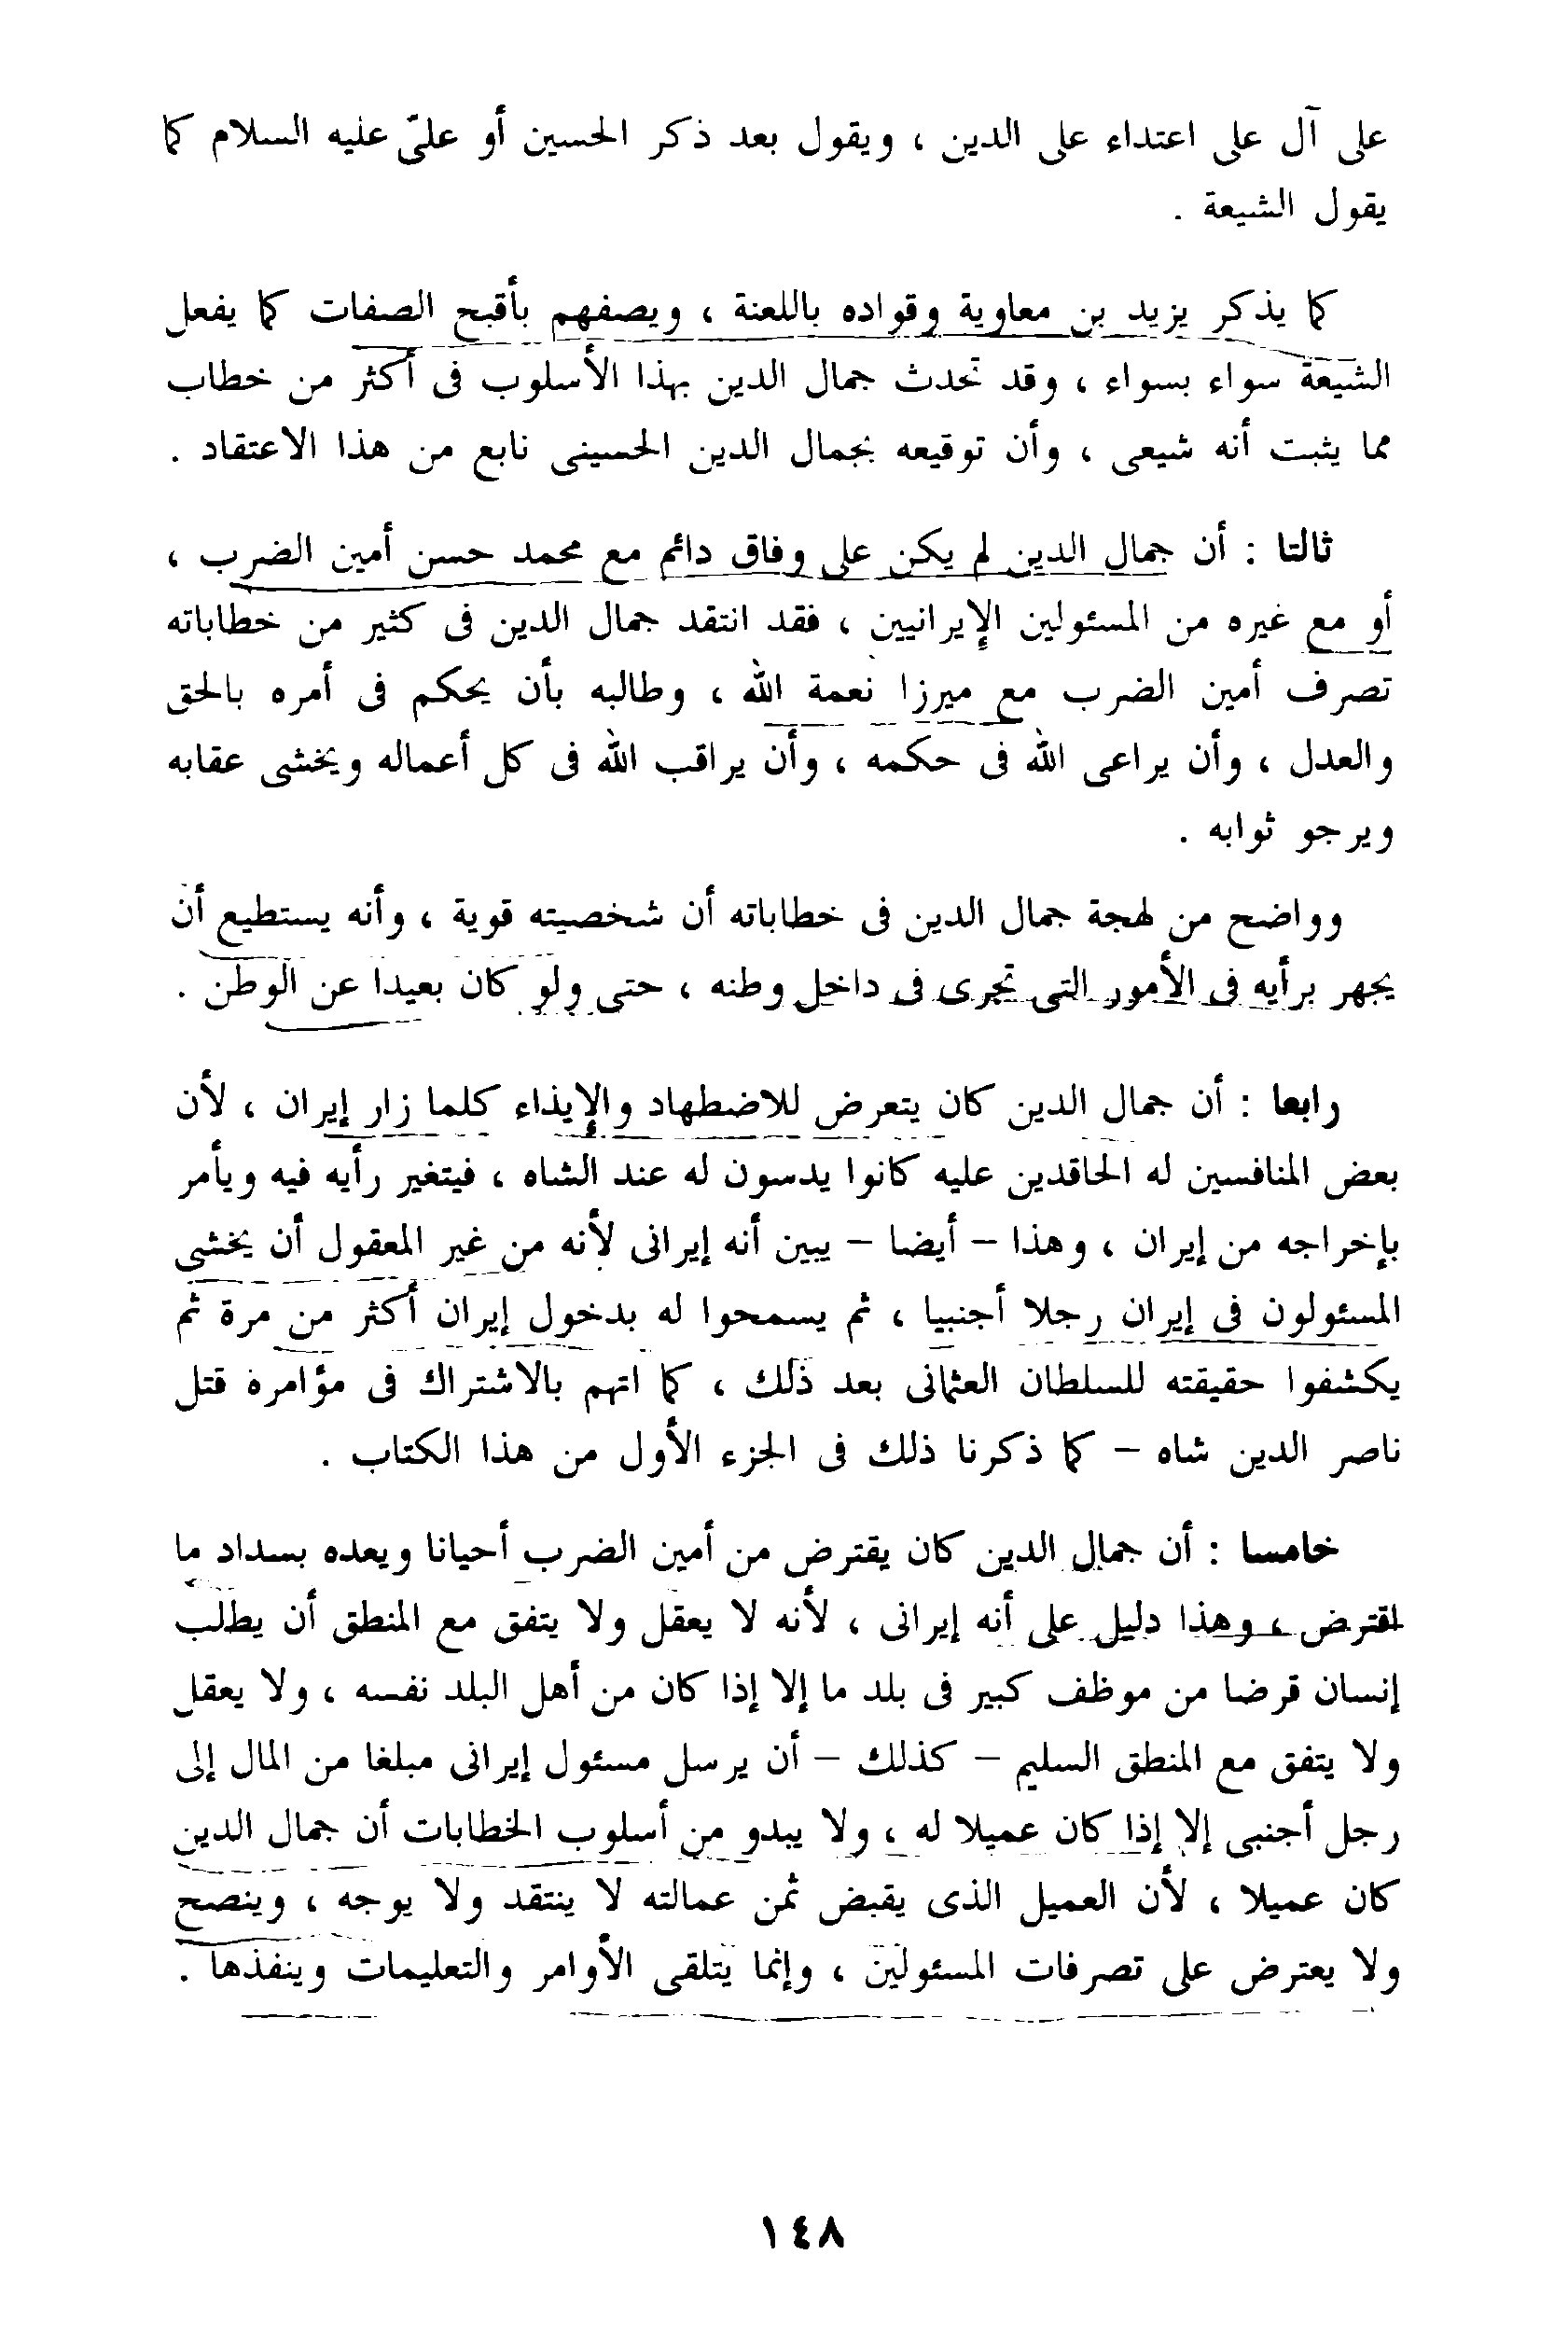 على آل على اعتداء على الدين ، ويقول بعد ذكر الحسين أو علىّ عليه السلام كما
يقول الشيعة .
كما يذكر يزيد بن معاوية وقواده باللعنة ، ويصفهم بأقبح الصفات كما يفعل
الشيعة سواء بسواء ، وقد تحدث جمال الدين بهذا الأسلوب فى أكثر من خطاب
مما يثبت أنه شيعى ، وأن توقيعه بجمال الدين الحسينى نابع من هذا الاعتقاد .
ثالثا : أن جمال الدين لم يكن على وفاق دائم مع محمد حسن أمين الضرب ،
أو مع غيره من المسئولين الإيرانيين ، فقد انتقد جمال الدين فى كثير من خطاباته
تصرف أمين الضرب مع ميرزا نعمة الله ، وطالبه بأن يحكم فى أمره بالحق
والعدل ، وأن يراعى الله فى حكمه ، وأن يراقب الله فى كل أعماله ويخشى عقابه
ويرجو ثوابه .
وواضح من لهجة جمال الدين فى خطاباته أن شخصيته قوية ، وأنه يستطيع أن
يجهر برأيه فى الأمور التى تجرى فى داخل وطنه ، حتى ولو كان بعيدا عن الوطن .
رابعا : أن جمال الدين كان يتعرض للاضطهاد والإيذاء كلما زار إيران ، لأن
بعض المنافسين له الحاقدين عليه كانوا يدسون له عند الشاه ، فيتغير رأيه فيه ويأمر
بإخراجه من إيران ، وهذا - أيضا - يبين أنه إيرانى لأنه من غير المعقول أن يخشى
المسئولون فى إيران رجلا أجنبيا ، ثم يسمحوا له بدخول إيران أكثر من مرة ثم
يكشفوا حقيقته للسلطان العثمانى بعد ذلك ، كما اتهم بالاشتراك فى مؤامرة قتل
ناصر الدين شاه - كما ذكرنا ذلك فى الجزء الأول من هذا الكتاب .
خامسا : أن جمال الدين كان يقترض من أمين الضرب أحيانا ويعده بسداد ما
اقترض ، وهذا دليل على أنه إيرانى ، لأنه لا يعقل ولا يتفق مع المنطق أن يطلب
إنسان قرضا من موظف كبير فى بلد ما إلا إذا كان من أهل البلد نفسه ، ولا يعقل
ولا يتفق مع المنطق السليم - كذلك - أن يرسل مسئول إيرانى مبلغا من المال إلى
رجل أجنبى إلا إذا كان عميلا له ، ولا يبدو من أسلوب الخطابات أن جمال الدين
كان عميلا ، لأن العميل الذى يقبض ثمن عمالته لا ينتقد ولا يوجه ، وينصح
ولا يعترض على تصرفات المسئولين ، وإنما يتلقى الأوامر والتعليمات وينفذها .
١٤٨